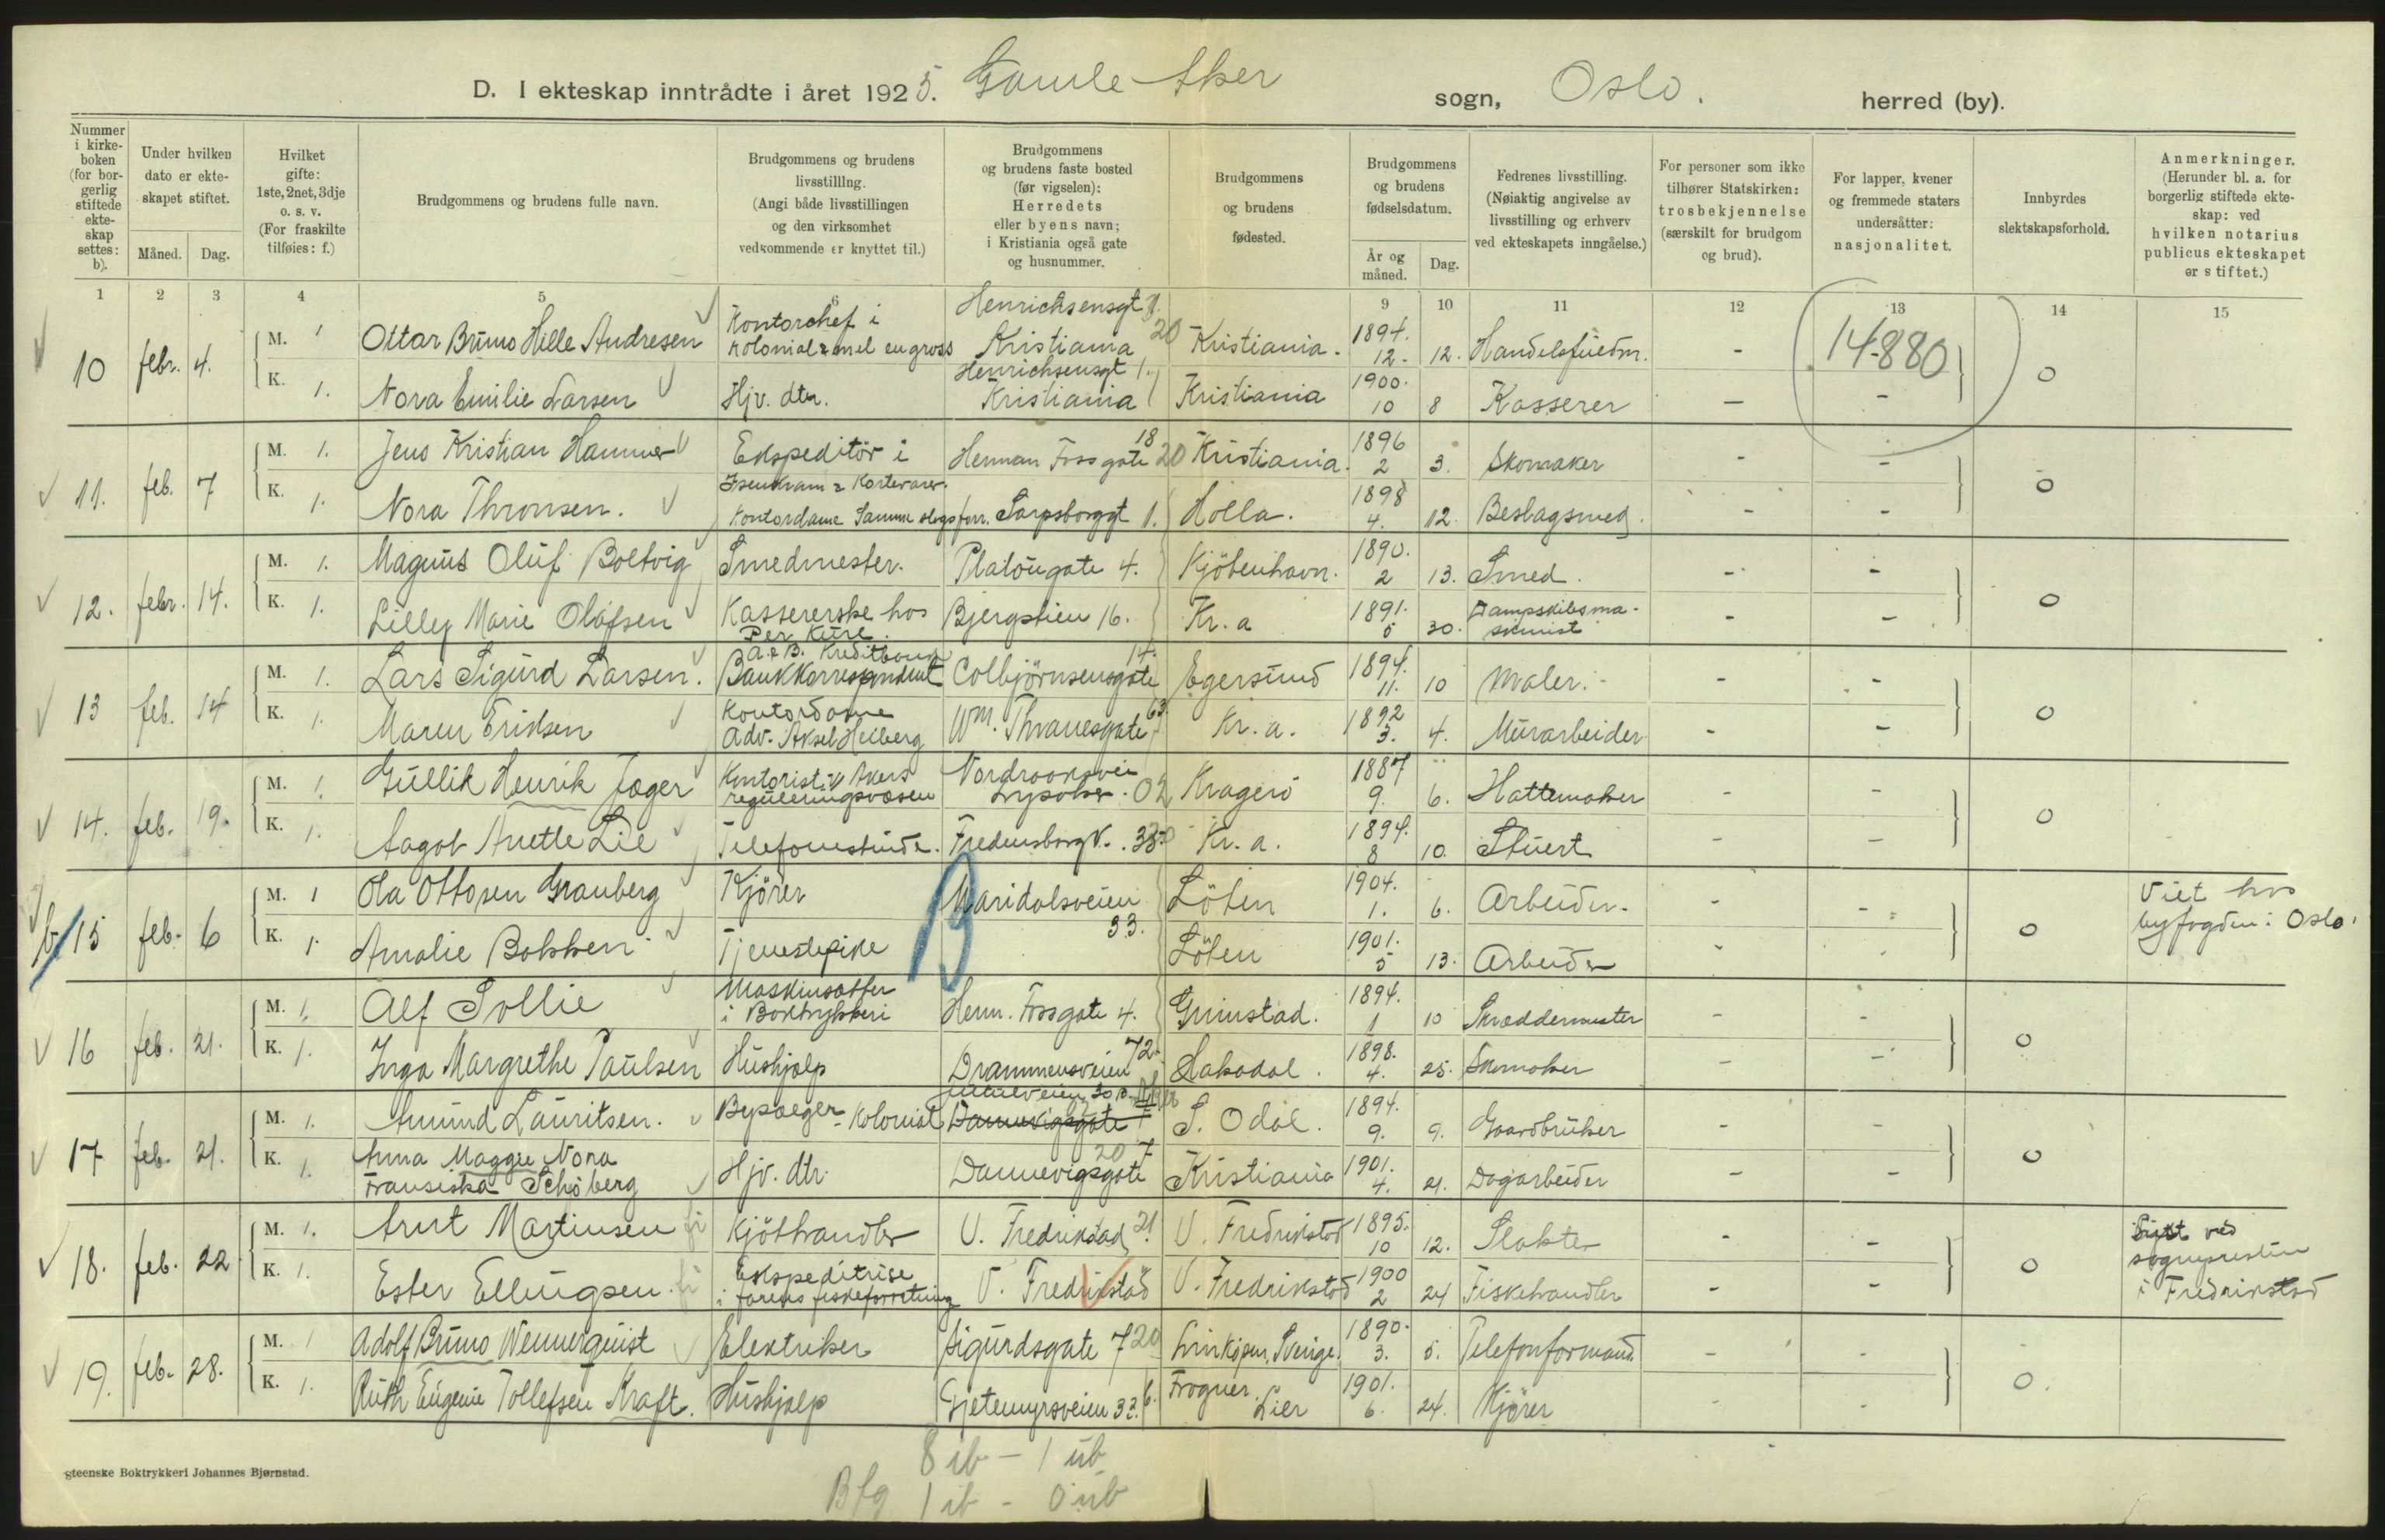 D. I ekteskap inntrådte i året 1925. Gamle Aker sogn, Oslo. herred (by).
Nummer i kirkeboken (for borgerlig stiftede ekteskap settes: b).
Under hvilken dato er ekteskapet stiftet.
Måned. Dag.
Hvilket gifte: 1ste, 2net, 3dje o. s. v. (For fraskilte tilføies: f.)
Brudgommens og brudens fulle navn.
Brudgommens og brudens livsstilling. (Angi både livsstillingen og den virksomhet vedkommende er knyttet til.)
Brudgommens og brudens faste bosted (før vigselen): Herredets eller byens navn; i Kristiania også gate og husnummer.
Brudgommens og brudens fødested.
Brudgommens og brudens fødselsdatum.
År og måned. Dag.
Fedrenes livsstilling. (Nøiaktig angivelse av livsstilling og erhverv ved ekteskapets inngåelse.)
For personer som ikke tilhører Statskirken: trosbekjennelse (særskilt for brudgom og brud).
For lapper, kvener og fremmede staters undersåtter: nasjonalitet.
Innbyrdes slektskapsforhold.
Anmerkninger. (Herunder bl. a. for borgerlig stiftede ekteskap: ved hvilken notarius publicus ekteskapet er stiftet.)
1 2 3 4 5 6 9 10 11 12 13 14 15
10 febr. 4. M. 1 Ottar Bruno Hille Andresen Kontorchef i Kolonial & mel engros Henrichsensgt Kristiania 20 Kristiania. 1894. 12. 12. Handelsfuldm. - 14880
K. 1. Nora Emilie Larsen Hjv. dtr. Henrichsensgt 1. Kristiania Kristiania 1900. 10 8 Kasserer - - 0
11. feb. 7 M. 1. Jens Kristian Hammer Ekspeditör i Isenkram & Kortevarer. Herman Foss gate 18 20 Kristiania. 1896 2 3. Skomaker - -
K. 1. Nora Thronsen. Kontordame Samme slags forr. Sarpsborggt 1. Holla. 1898 4. 12. Beslagsmed. - - 0
12. febr. 14. M. 1. Magnus Oluf Boltvig Smedmester. Platöugate 4. Kjöbenhavn. 1890. 2 13. Smed. - -
K. 1. Lilley Marie Olafsen Kassererske hos Per Kure. Bjergstien 16. Kr. a 1891. 5 30. Dampskibsmaskinist - - 0
13 feb. 14 M. 1. Lars Sigurd Larsen. A. & B. Kreditbank Bankkorrespondent Colbjörnsensgate 14. Egersund 1894. 11. 10 Maler. - -
K. 1. Maren Eriksen Kontordame Adv. Aksel Heiberg Wm. Thranesgate 63. Kr. a. 1892 3. 4. Murarbeider - - 0
14. feb. 19. M. 1. Gullik Henrik Jæger Kontorist v. Akers reguleringsvæsen Nordraaksvei Lysaker. 02 Kragerö 1887 9. 6. Hattemaker - -
K. 1. Aagot Anette Lie Telefonistinde. Fredensborgv. Kr. a. 1894. 8 10. Stuert - - 0
b. 15 feb. 6 M. 1 Ola Ottosen Granberg Kjörer B Maridalsveien 33. Löten 1904. 1. 6. Arbeider. - -
K. 1. Amalie Bakken Tjenestepike Löten 1901. 5 13. Arbeider - - 0
Viet hos byfogden i Oslo.
16 feb. 21. M. 1. Alf Sollie Maskinsætter i Boktrykkeri Herm. Fossgate 4. Grimstad. 1894. 1 10 Skræddermester - -
K. 1. Inga Margrethe Paulsen Hushjælp Drammensveien 72. Hakadal. 1898. 4. 25. Skomaker - - 0
17 feb. 21. M. 1. Amund Lauritsen. Bypaeger - Kolonial Ullulveien Dannevigsgate 7 S. Odal. 1894. 9. 9. Gaardbruker - -
K. 1. Anna Maggie Nora Fransiska Schöberg Hjv. dtr. Dannevigsgate 20 7 Kristiania 1901. 4. 21. Dagarbeider - - 0
18. feb. 22 M. 1. Arnt Martinsen Kjöthandler V. Fredrikstad 21. V. Fredrikstad 1895. 10 12. Slakter - -
K. 1. Ester Ellingsen Ekspeditrise i farens fiskeforretning V. Fredrikstad V. Fredrikstad 1900 2 24 Fiskehandler - - 0
Lyst ved sogneprestin i Fredrikstad
19. feb. 28. M. 1 Adolf Bruno Wennerquist Elektriker Sigurdsgate 7 20 Linköpen, Sverige. 1890. 3. 5. Telefonformand - -
K. 1. Ruth Eugenie Tollefsen Kraft. Hushjælp Gjetemyrsveien 33. b. Frogner. Lier 1901. 6. 24. Kjörer - - 0.
steenske Boktrykkeri Johannes Bjørnstad.
8 ib - 1 ub
Bfg 1 ib - 0 ub